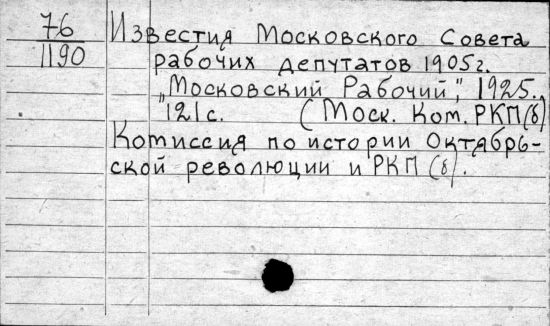 76
1190
Известия Московского Совета
рабочих депутатов 1905г.
„Московский Рабочий”, 1925.
121с. (Моск. Ком. РКП(б)
Комиссия по истории Октябрь-
ской революции и РКП(б).